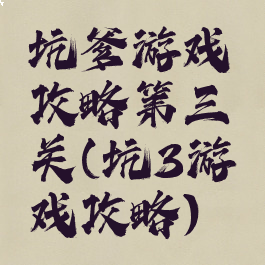 坑爹游戏
攻略第三
关(坑3游
戏攻略)